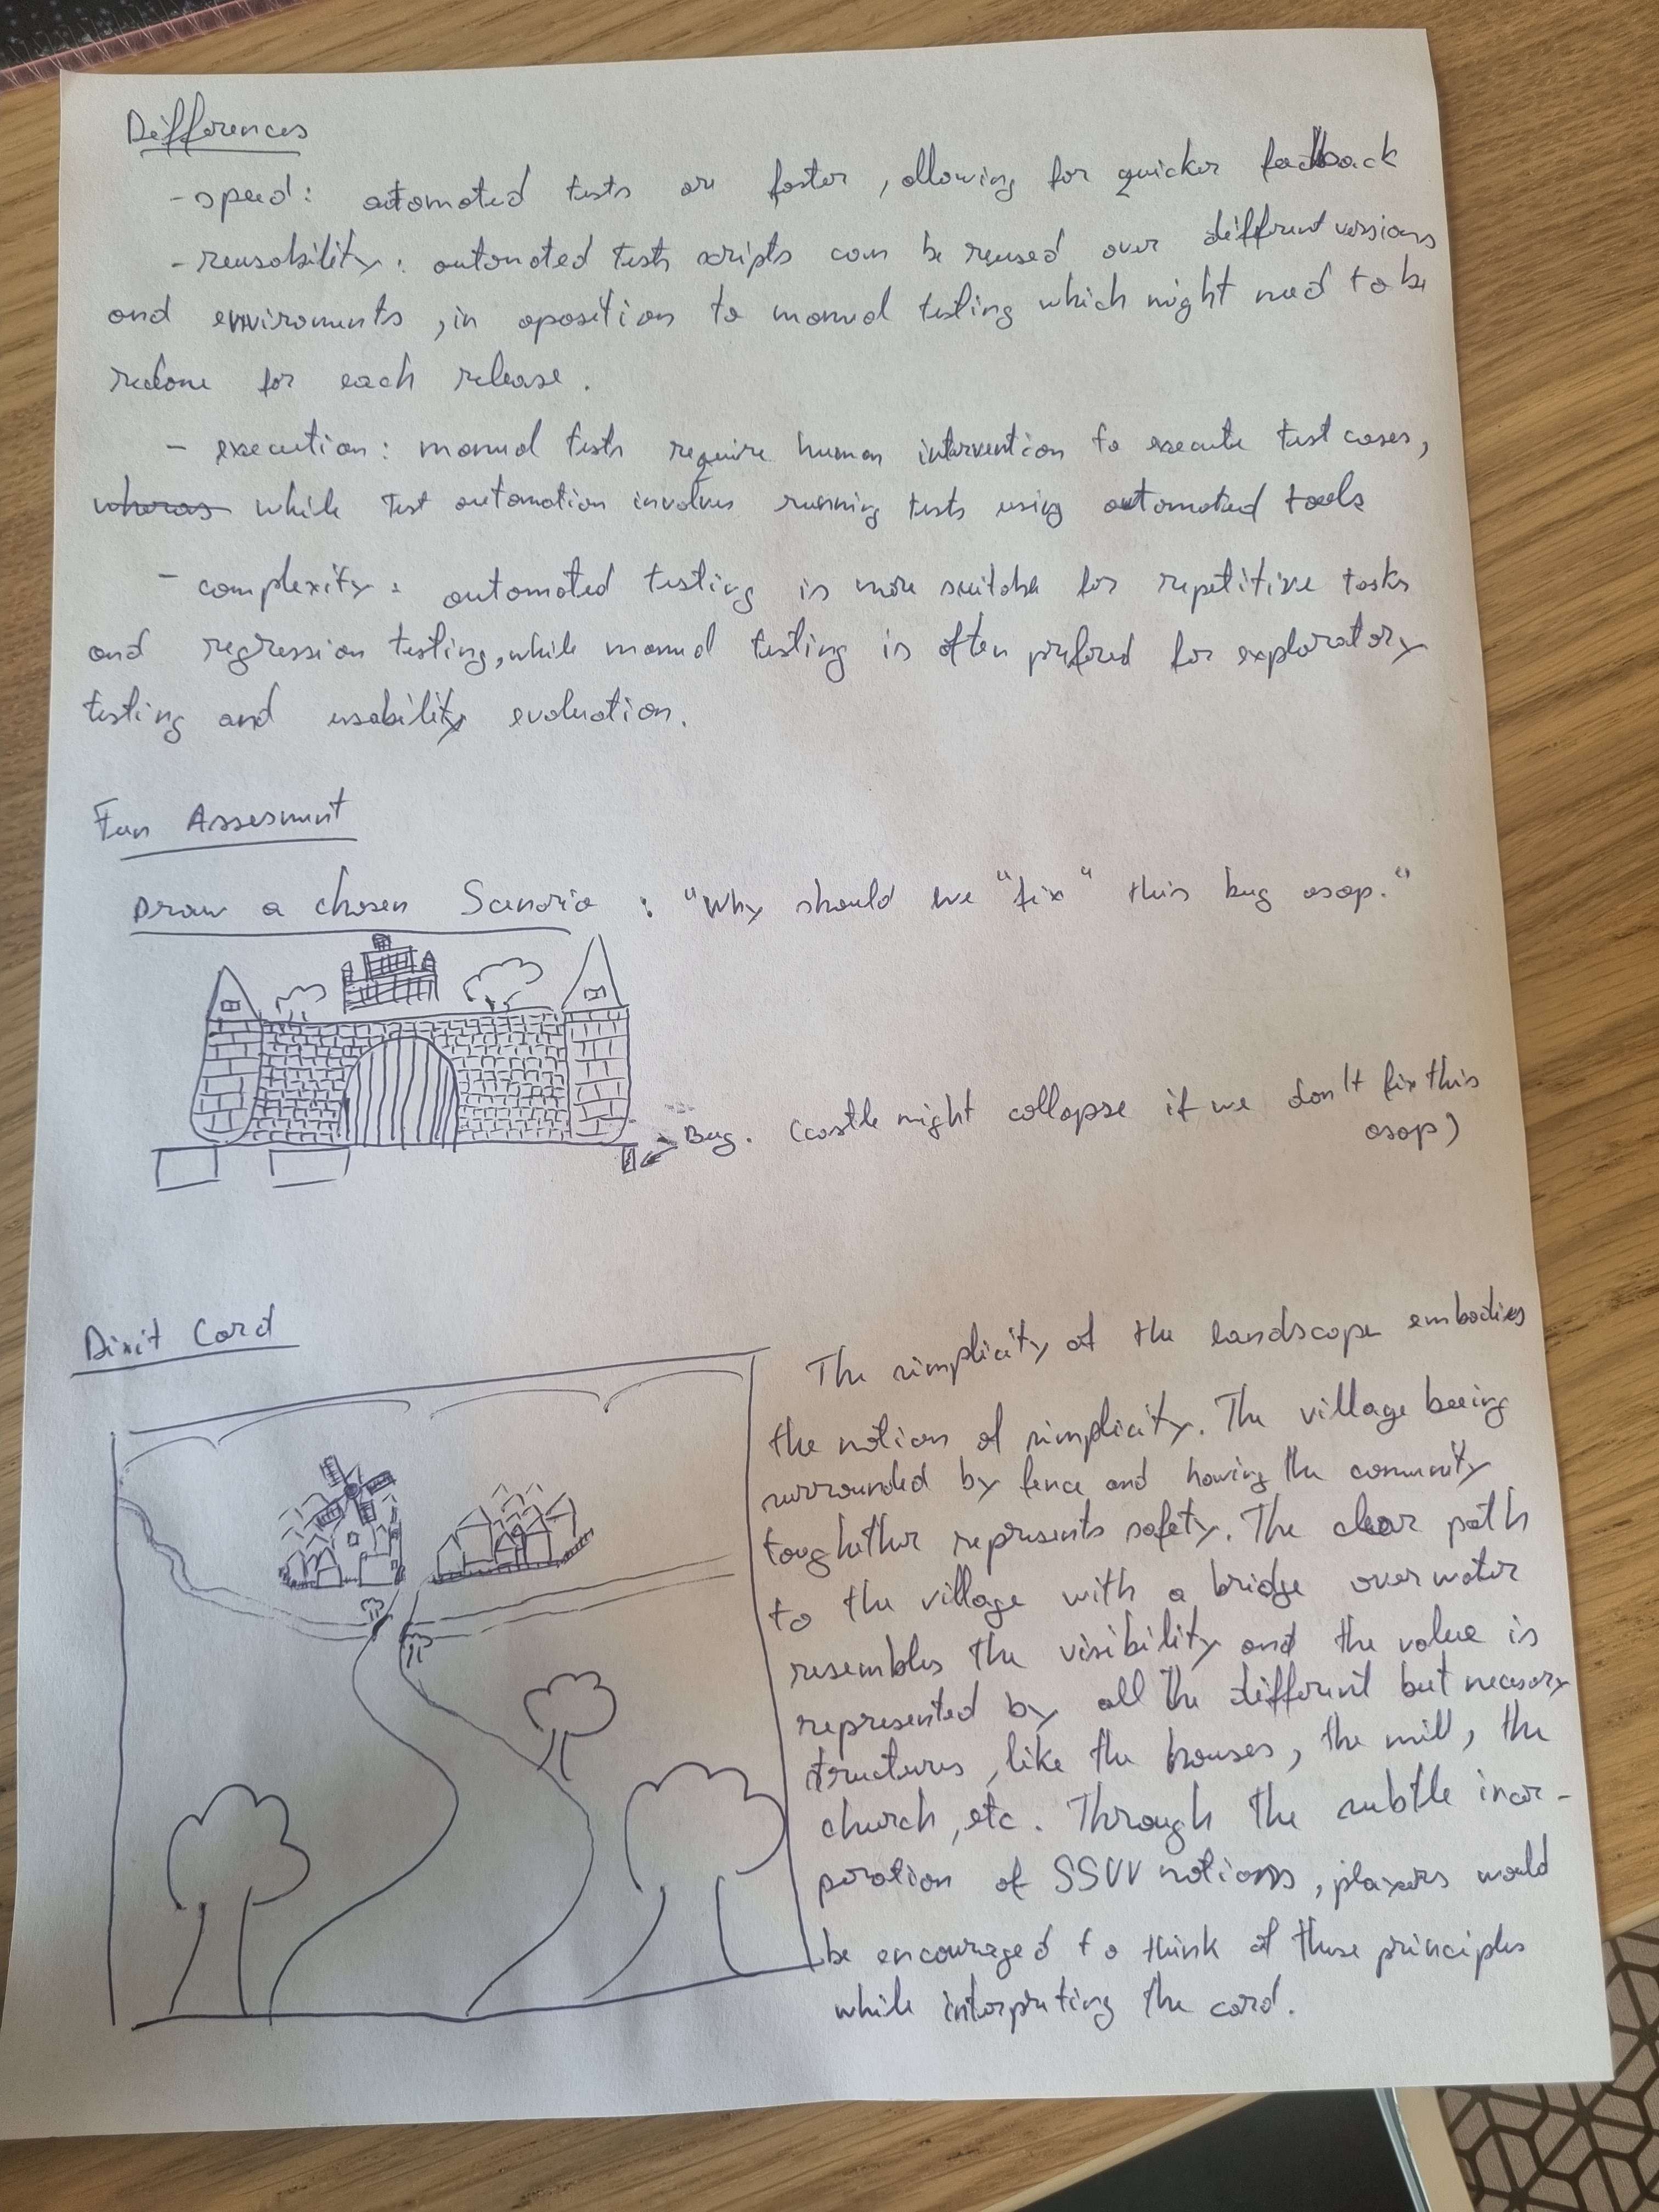 Differences
- speed: automated tests are faster, allowing for quicker feedback
- reusability: automated tests scripts can be reused over different versions
and enviroments, in oposition to manual testing which might need to be
redone for each release.
- execution: manual tests require human intervention to execute test cases,
wheras while test automation involves running tests using automated tools
- complexity: automated testing is more suitable for repetitive tasks
and regression testing, while manual testing is often prefered for exploratory
testing and usability evaluation.
Fun Assesment
Draw a chosen Scenario : "Why should we "fix" this bug asap."
Bug. (castle might collapse if we don't fix this
asap)
Dixit Card
The simplicity of the landscape embodies
the notion of simplicity. The village beeing
surrounded by fence and having the comunity
toughether represents safety. The clear path
to the village with a bridge over water
resembles the visibility and the value is
represented by all the different but necesary
structures, like the houses, the mill, the
church, etc. Through the subtle incor-
poration of SSVV notions, players would
be encouraged to think of these principles
while interpreting the card.